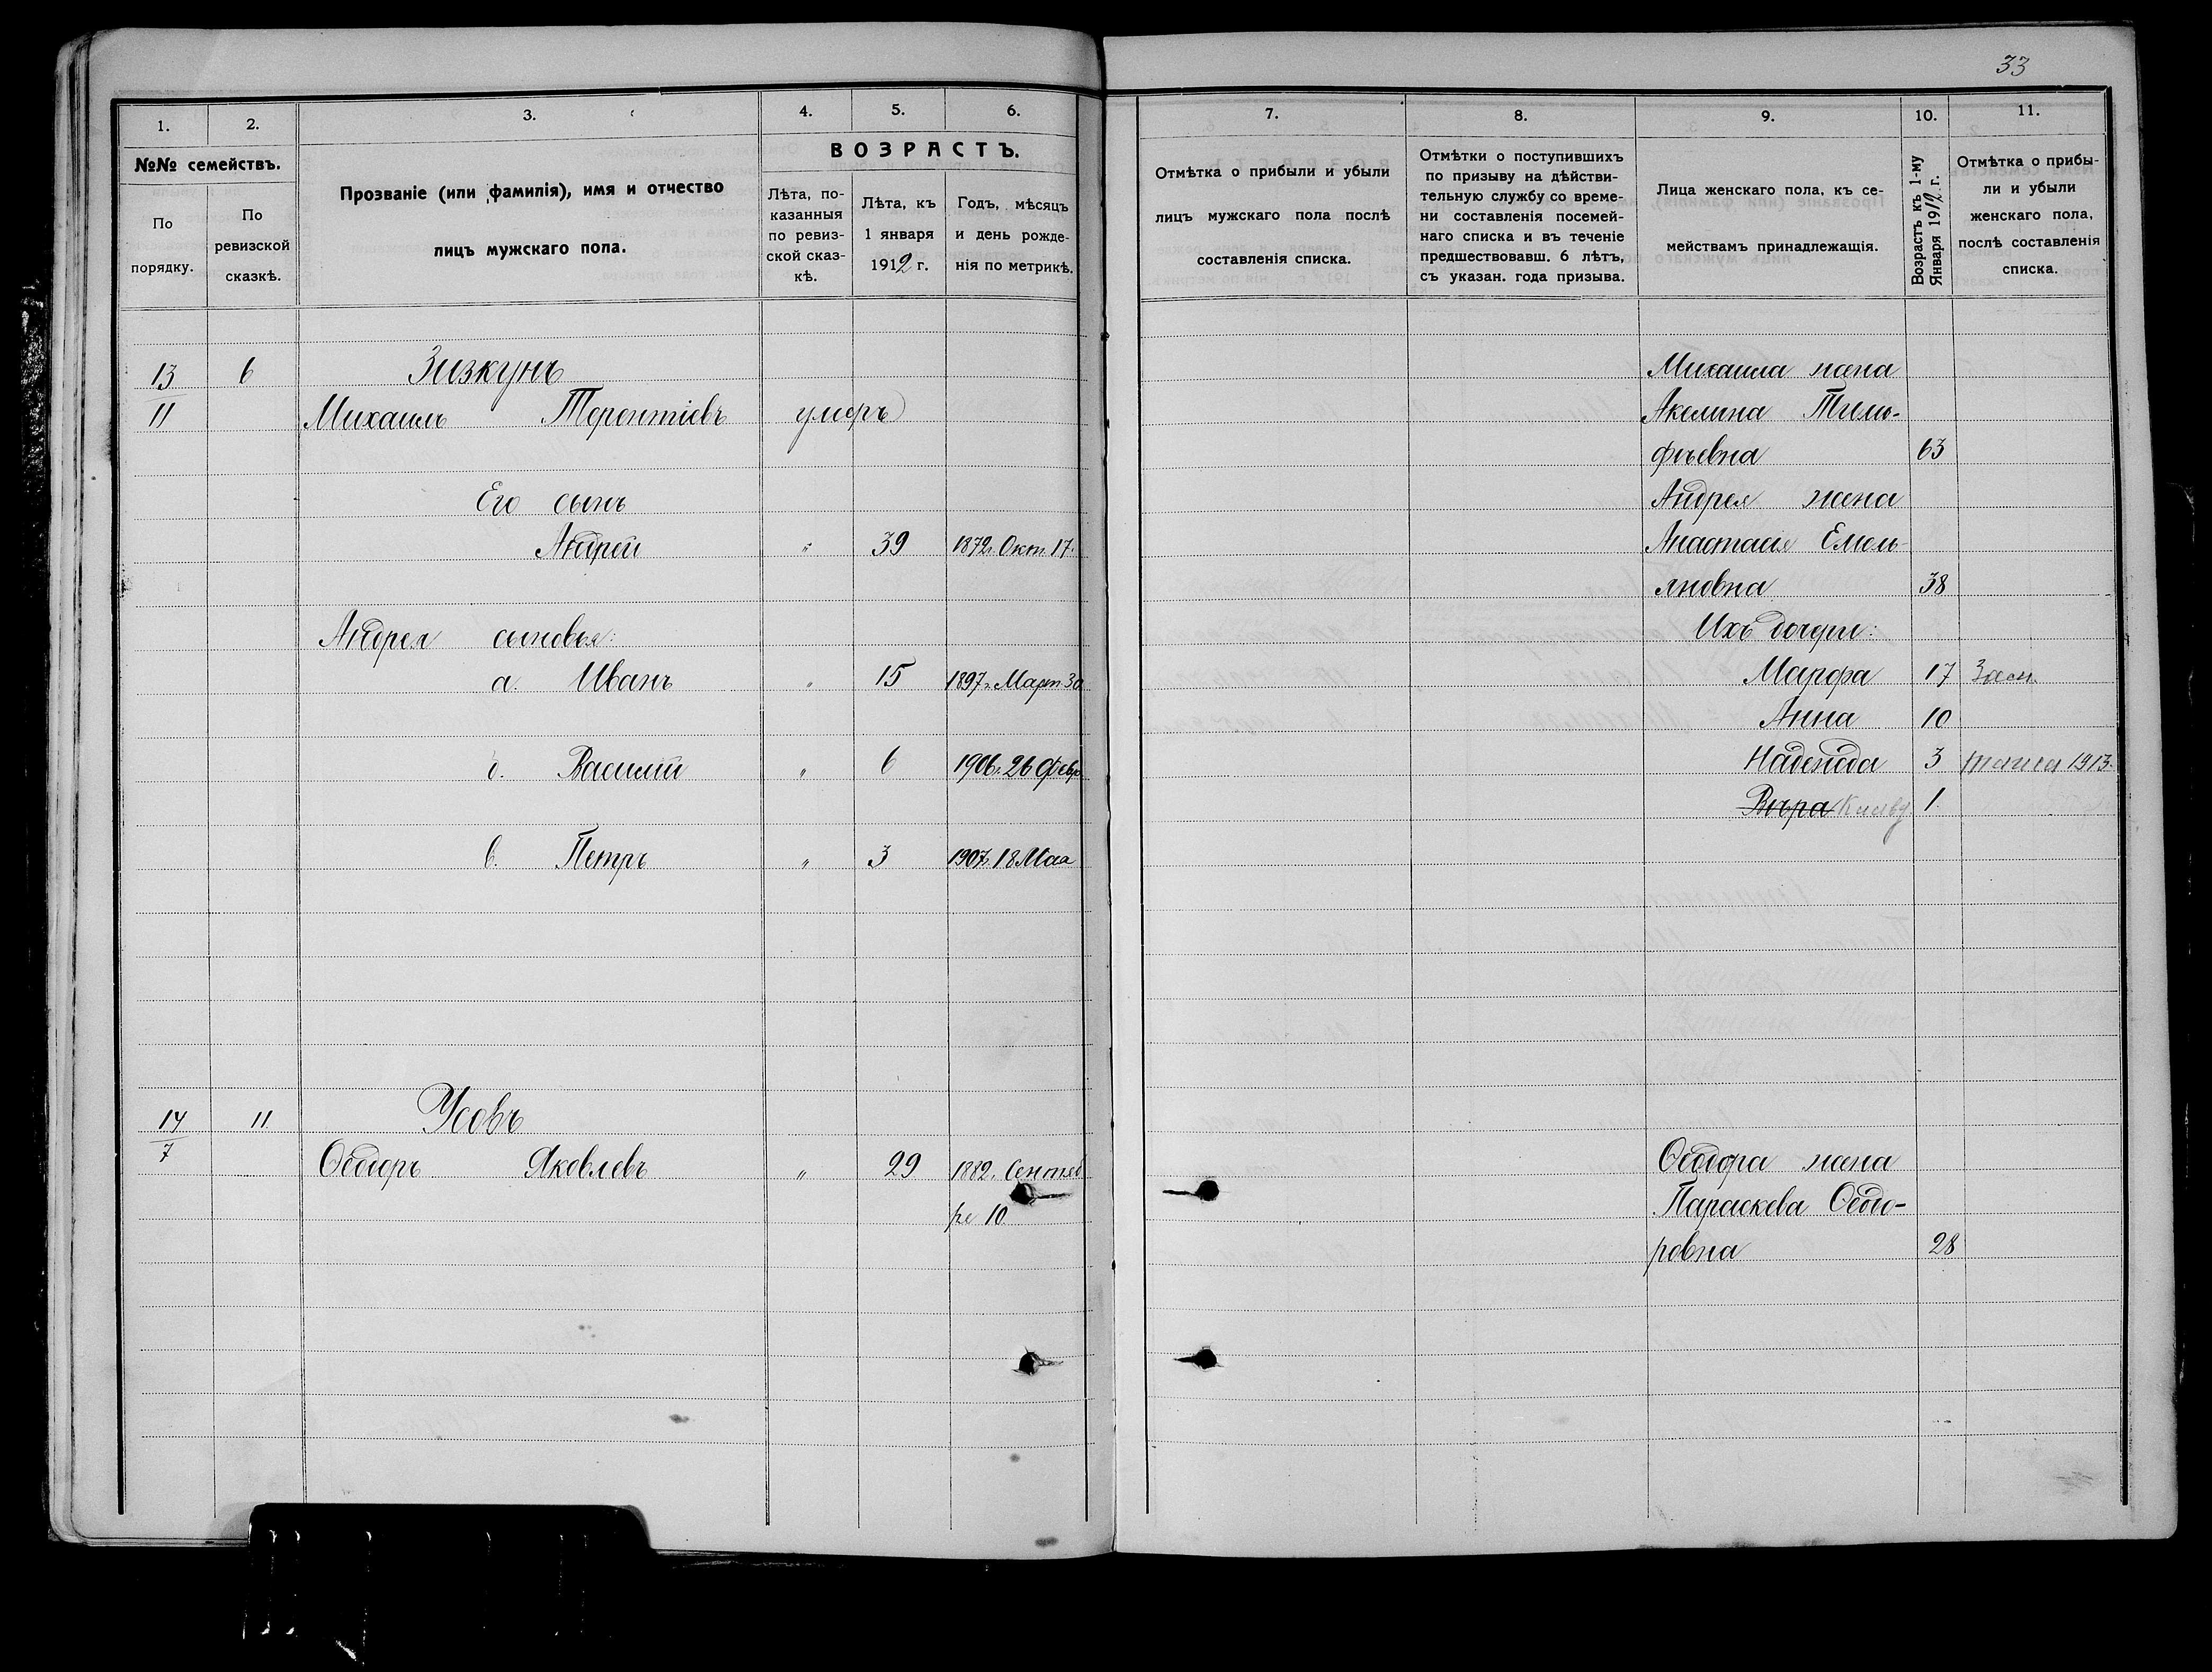 33
1.
2.
3.
4.
5.
6.
7.
8.
9.
10.
11.
№№ семействъ.
По порядку.
По ревизской сказкѣ.
Прозваніе (или фамилія), имя и отчество
лицъ мужскаго пола.
ВОЗРАСТЪ.
Лѣта, по-
казанныя
по ревиз-
ской сказ-
кѣ.
Лѣта, къ
1 января
1912 г.
Годъ, мѣсяцъ
и день рожде-
нія по метрикѣ.
Отмѣтка о прибыли и убыли
лицъ мужскаго пола послѣ
составленія списка.
Отмѣтки о поступившихъ
по призыву на дѣйстви-
тельную службу со време-
ни составленія посемей-
наго списка и въ теченіе
предшествовавш. 6 лѣтъ,
съ указан. года призыва.
Лица женскаго пола, къ се-
мействамъ принадлежащія.
Возрастъ къ 1-му
Января 1912 г.
Отмѣтка о прибы-
ли и убыли
женскаго пола,
послѣ составленія
списка.
13 6 Зизкунъ
11 Михаилъ Терентіевъ умеръ
Его сынъ
Андрей " 39 1872 г. Окт. 17.
Андрея сыновья:
а. Иванъ " 15 1897 г. Март 30
б. Василій " 6 1906 г. 26 Февр
в. Петръ " 3 1907 г. 18 Мая
14 11 Усовъ
7 Ѳеодоръ Яковлевъ " 29 1882 г. Сентяб
ре 10
Михаила жена
Акелина Тимо-
фѣевна 63
Андрея жена
Анастасія Емель-
яновна 38
Ихъ дочери:
Марфа 17
Анна 10
Надежда 3 1913
Вѣра 1.
Ѳеодора жена
Параскева Ѳеодо-
ровна 28